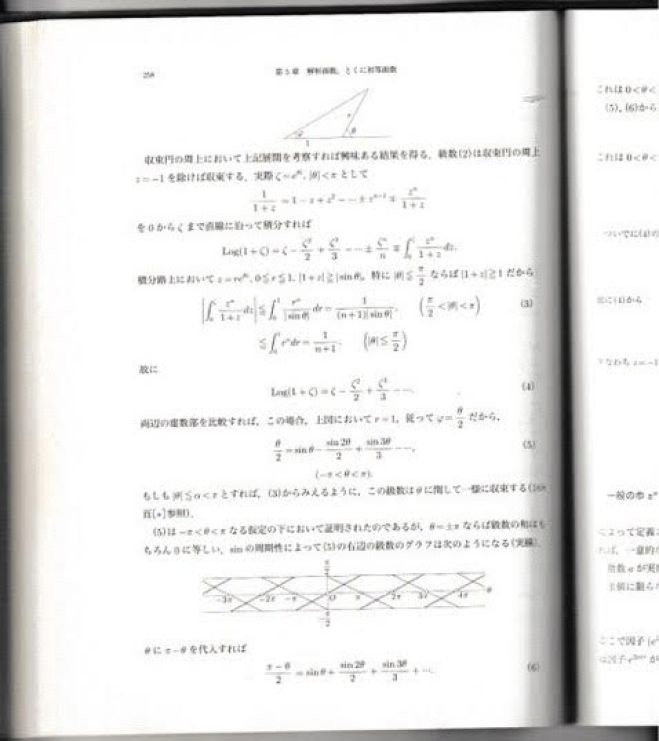 258
第5章 解析函数，とくに初等函数
r
φ
θ
1
収束円の周上において上記展開を考察すれば興味ある結果を得る．級数(2)は収束円の周上
z=−1 を除けば収束する．実際 ζ=e^{iθ}, |θ|<π として
1/(1+z) = 1−z+z²−⋯±z^{n−1}∓ z^n/(1+z)
を 0 から ζ まで直線に沿って積分すれば
Log(1+ζ)=ζ− ζ²/2 + ζ³/3 −⋯± ζ^n/n ∓ ∫₀^ζ z^n/(1+z) dz.
積分路上において z=re^{iθ}, 0≦r≦1, |1+z|≧|sin θ|, 特に |θ|≦ π/2 ならば |1+z|≧1 だから
|∫₀^ζ z^n/(1+z) dz| ≦ ∫₀¹ r^n/|sin θ| dr = 1/((n+1)|sin θ|), (π/2<|θ|<π) (3)
≦ ∫₀¹ r^n dr = 1/(n+1). (|θ|≦ π/2)
故に
Log(1+ζ)=ζ− ζ²/2 + ζ³/3 −⋯. (4)
両辺の虚数部を比較すれば，この場合，上図において r=1, 従って φ= θ/2 だから，
θ/2 = sin θ− sin 2θ/2 + sin 3θ/3 −⋯, (5)
(−π<θ<π).
もしも |θ|≦α<π とすれば，(3)からみえるように，この級数は θ に関して一様に収束する(168
頁[*]参照)．
(5)は −π<θ<π なる仮定の下において証明されたのであるが，θ=±π ならば級数の和はも
ちろん 0 に等しい．sin の周期性によって(5)の右辺の級数のグラフは次のようになる(実線)．
π/2
−3π −2π −π O π 2π 3π 4π θ
−π/2
θ に π−θ を代入すれば
(π−θ)/2 = sin θ+ sin 2θ/2 + sin 3θ/3 +⋯. (6)
これは 0<θ<
(5), (6)から
これは 0<θ<
ついでに(4)の
次に(4)から
すなわち z=−1
一般の巾 z^a
によって定義
れば，一意的
指数 a が実
主値に限ら
ここで因子